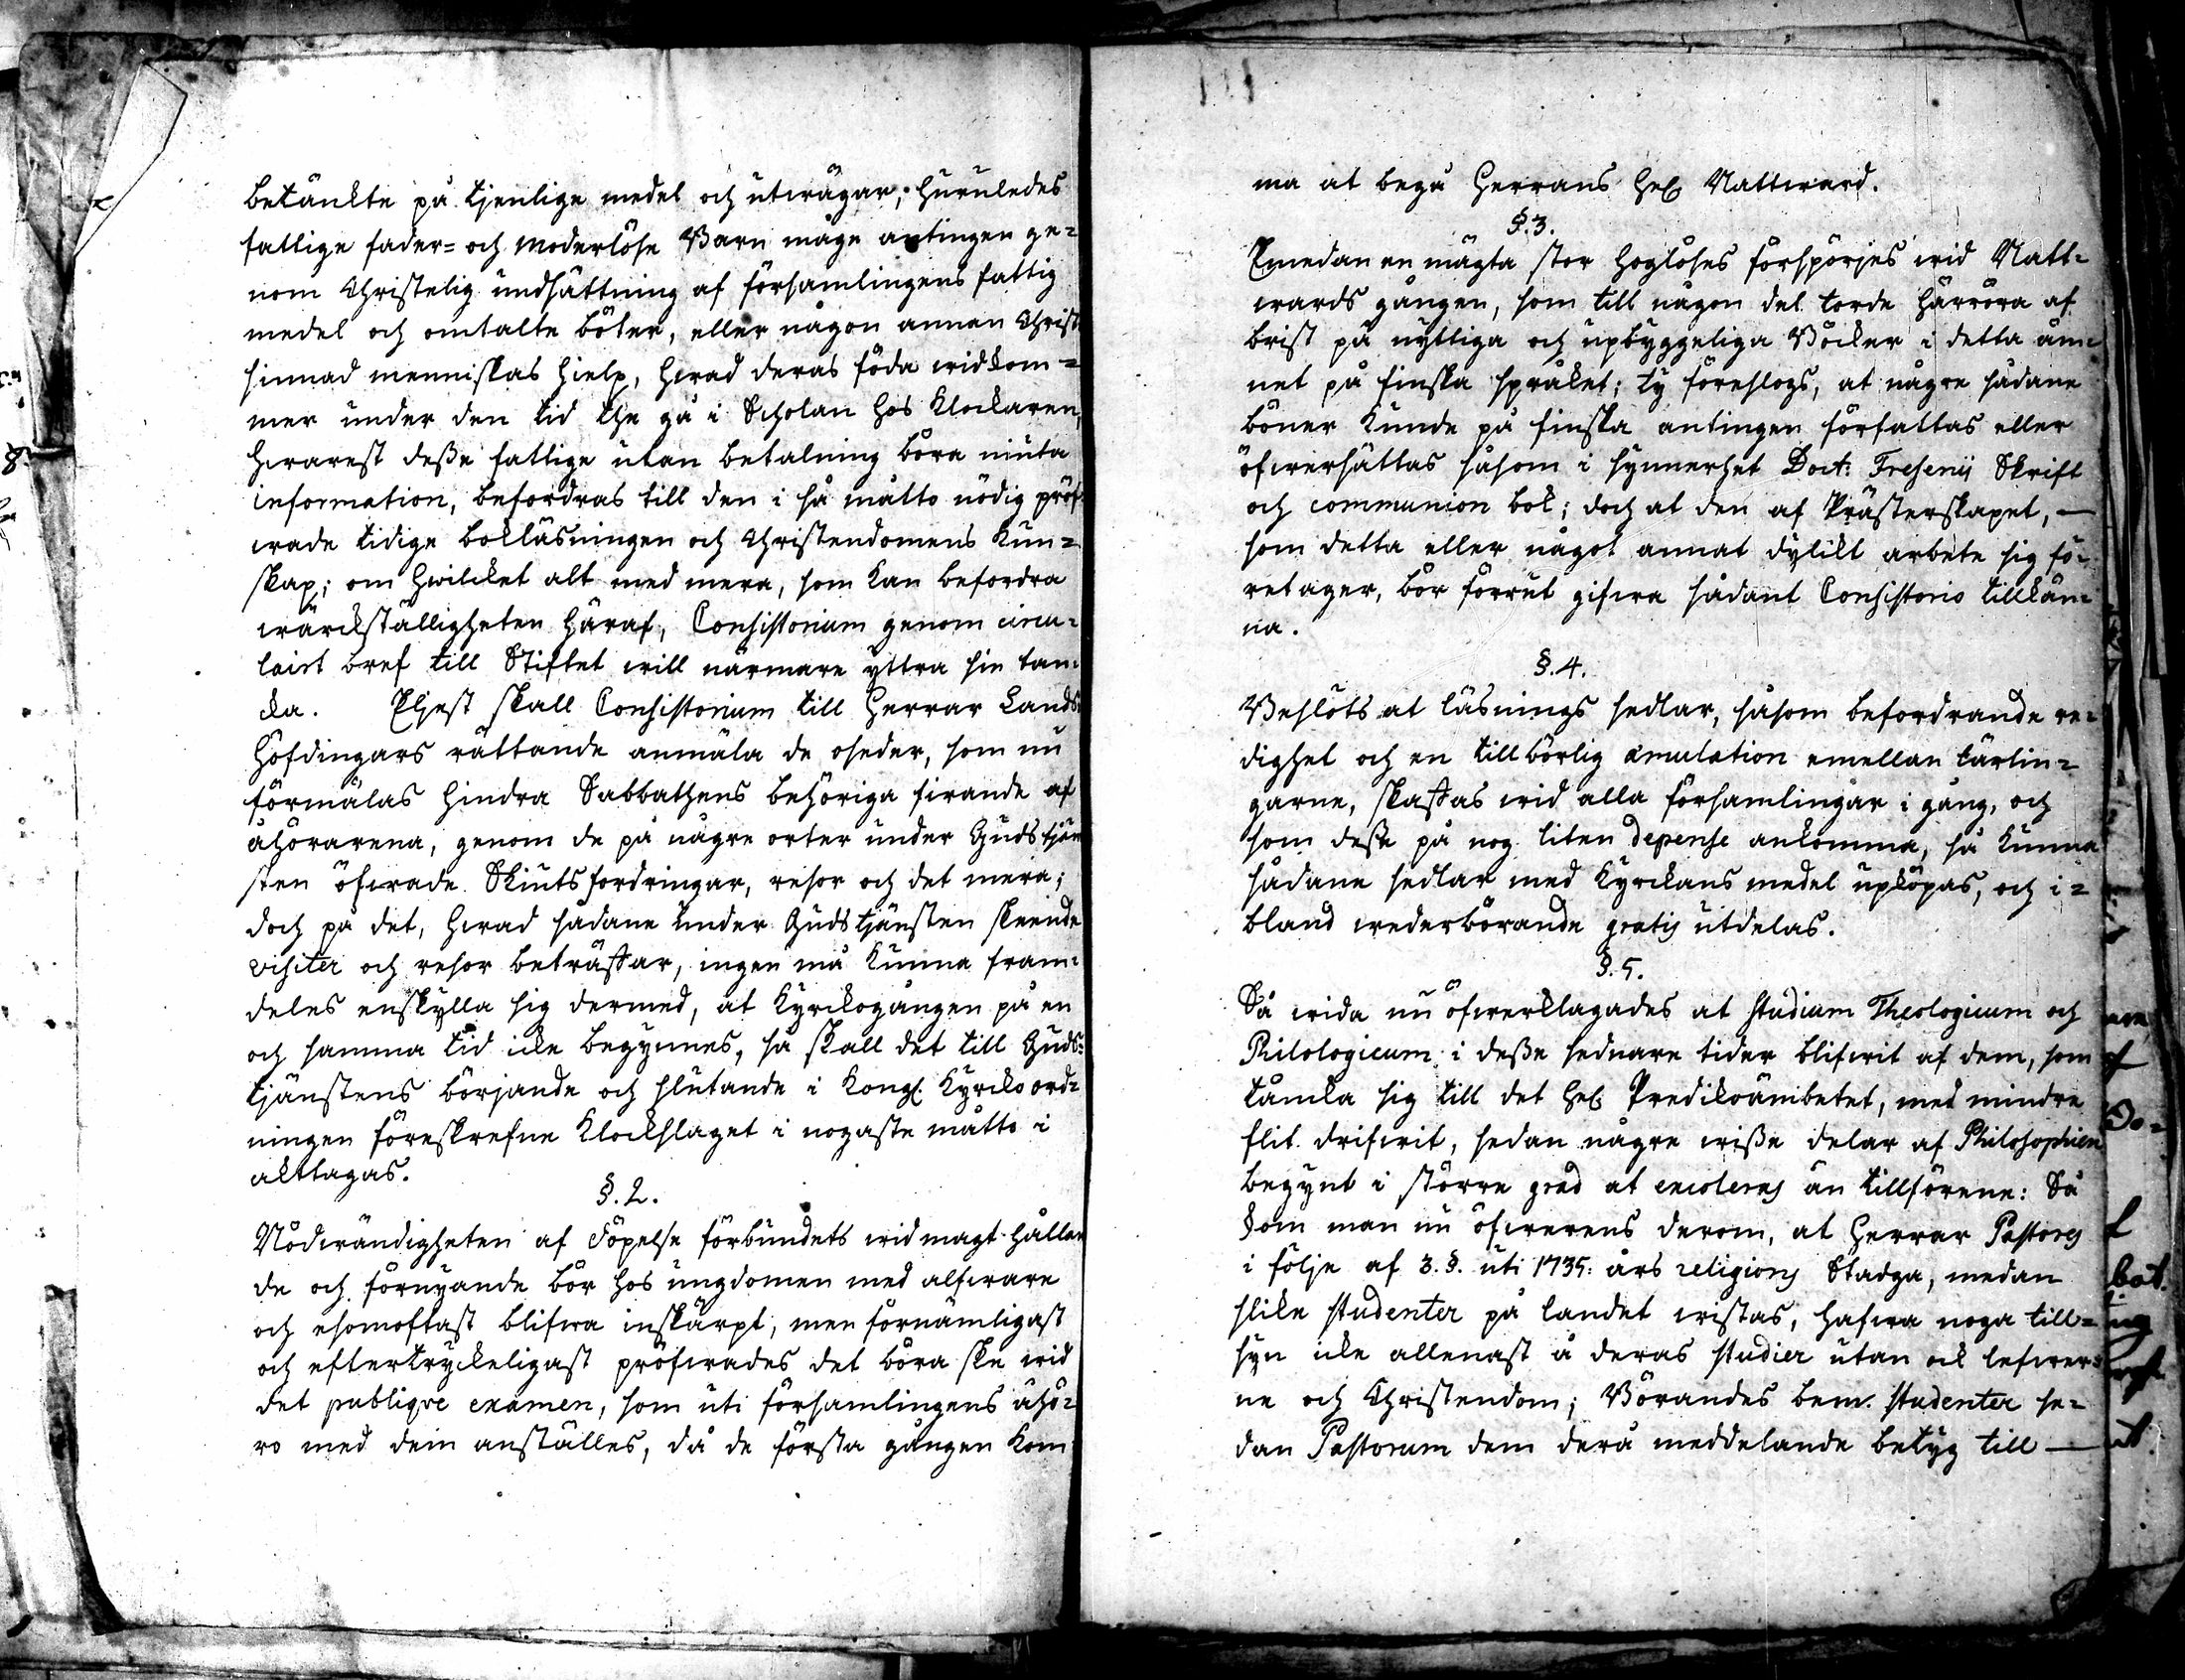 betänckte på tjenlige medel och utwägar, huruledes
fattige fader= och moderlöse Barn måge antingen ge=
nom Christelig undsättning af församlingens fattig
medel och omtalte böter, eller någon annan Christ
sinnad menniskas hielp, hwad deras föda widkom=
mer under den tid the gå i Scholan hos Klockaren,
hwarest deße fattige utan betalning böra niuta
information, befordras till den i så måtto nödig pröf
wade tidige bokläsningen och Christendomens kun=
skap; om hwilcket alt med mera, som kan befordra
wärckställigheten häraf, Consistorium genom circu=
lairt bref till Stiftet will närmare yttra sin tan=
cka. Eljest skall Consistorium till Herrar Lands
höfdingars rättande anmäla de oseder, som nu
förmälas hindra Sabbathens behöriga firande af
åhörarena, genom de på någre orter under Gudstjän
sten öfwade Skiutsfordringar, resor och det mera;
doch på det, hwad sådane under Gudstjänsten skeende
visiter och resor beträffar, ingen må kunna fram=
deles enskylla sig dermed, at Kyrckogången på en
och samma tid icke begynnes, så skall det till Guds=
tjänstens börjande och slutande i Kongl. Kyrcko ord=
ningen föreskrefne Klockslaget i nogaste måtto i
akttagas.
§. 2.
Nödwändigheten af döpelse förbundets wid magt hållan
de och förnyande bör hos ungdomen med alfware
och esomoftast blifwa inskärpt, men förnämligast
och eftertryckeligast pröfwades det böra ske wid
det publiqve examen, som uti församlingens åhö=
ro med dem anställes, då de första gången kom=
ma at begå Herrans Hel. Nattward.
§. 3.
Emedan en mägta stor hoglöshet förspörjes wid Natt=
wards gången, som till någon del torde härröra af
brist på nyttiga och upbyggeliga Böcker i detta äm=
net på finska språket; ty föreslogs, at någre sådane
böner kunde på finska antingen författas eller
öfwersättas såsom i synnerhet Doct: Fresenii Skrift
och communion bok; doch at den af Prästerskapet, —
som detta eller något annat dylikt arbete sig fö=
retager, bör förrut gifwa sådant Consistorio tillkän=
na.
§. 4.
Beslöts at läsnings sedlar, såsom befordrande re=
dighet och en tillbörlig æmulation emellan lärlin=
garne, skaffas wid alla församlingar i gång, och
som deße på nog liten depense ankomma, så kunna
sådane sedlar med Kyrckans medel upköpas, och i=
bland wederbörande gratis utdelas.
§. 5.
Så wida nu öfwerklagades at studium Theologicum och
Philologicum i deße sednare tider blifwit af dem, som
tämka sig till det Hel. Predikoämbetet, med mindre
flit drifwit, sedan någre wiße delar af Philosophien
begynt i större grad at excoleras än tillförene: Så
kom man nu öfwerens derom, at Herrar Pastores
i följe af 3. §. uti 1735: års religions Stadga, medan
slike studenter på landet wistas, hafwa noga till=
syn icke allenast å deras studier utan ock lefwer=
ne och Christendom; Börandes bem. studenter se=
dan Pastorum dem derå meddelande betyg till —